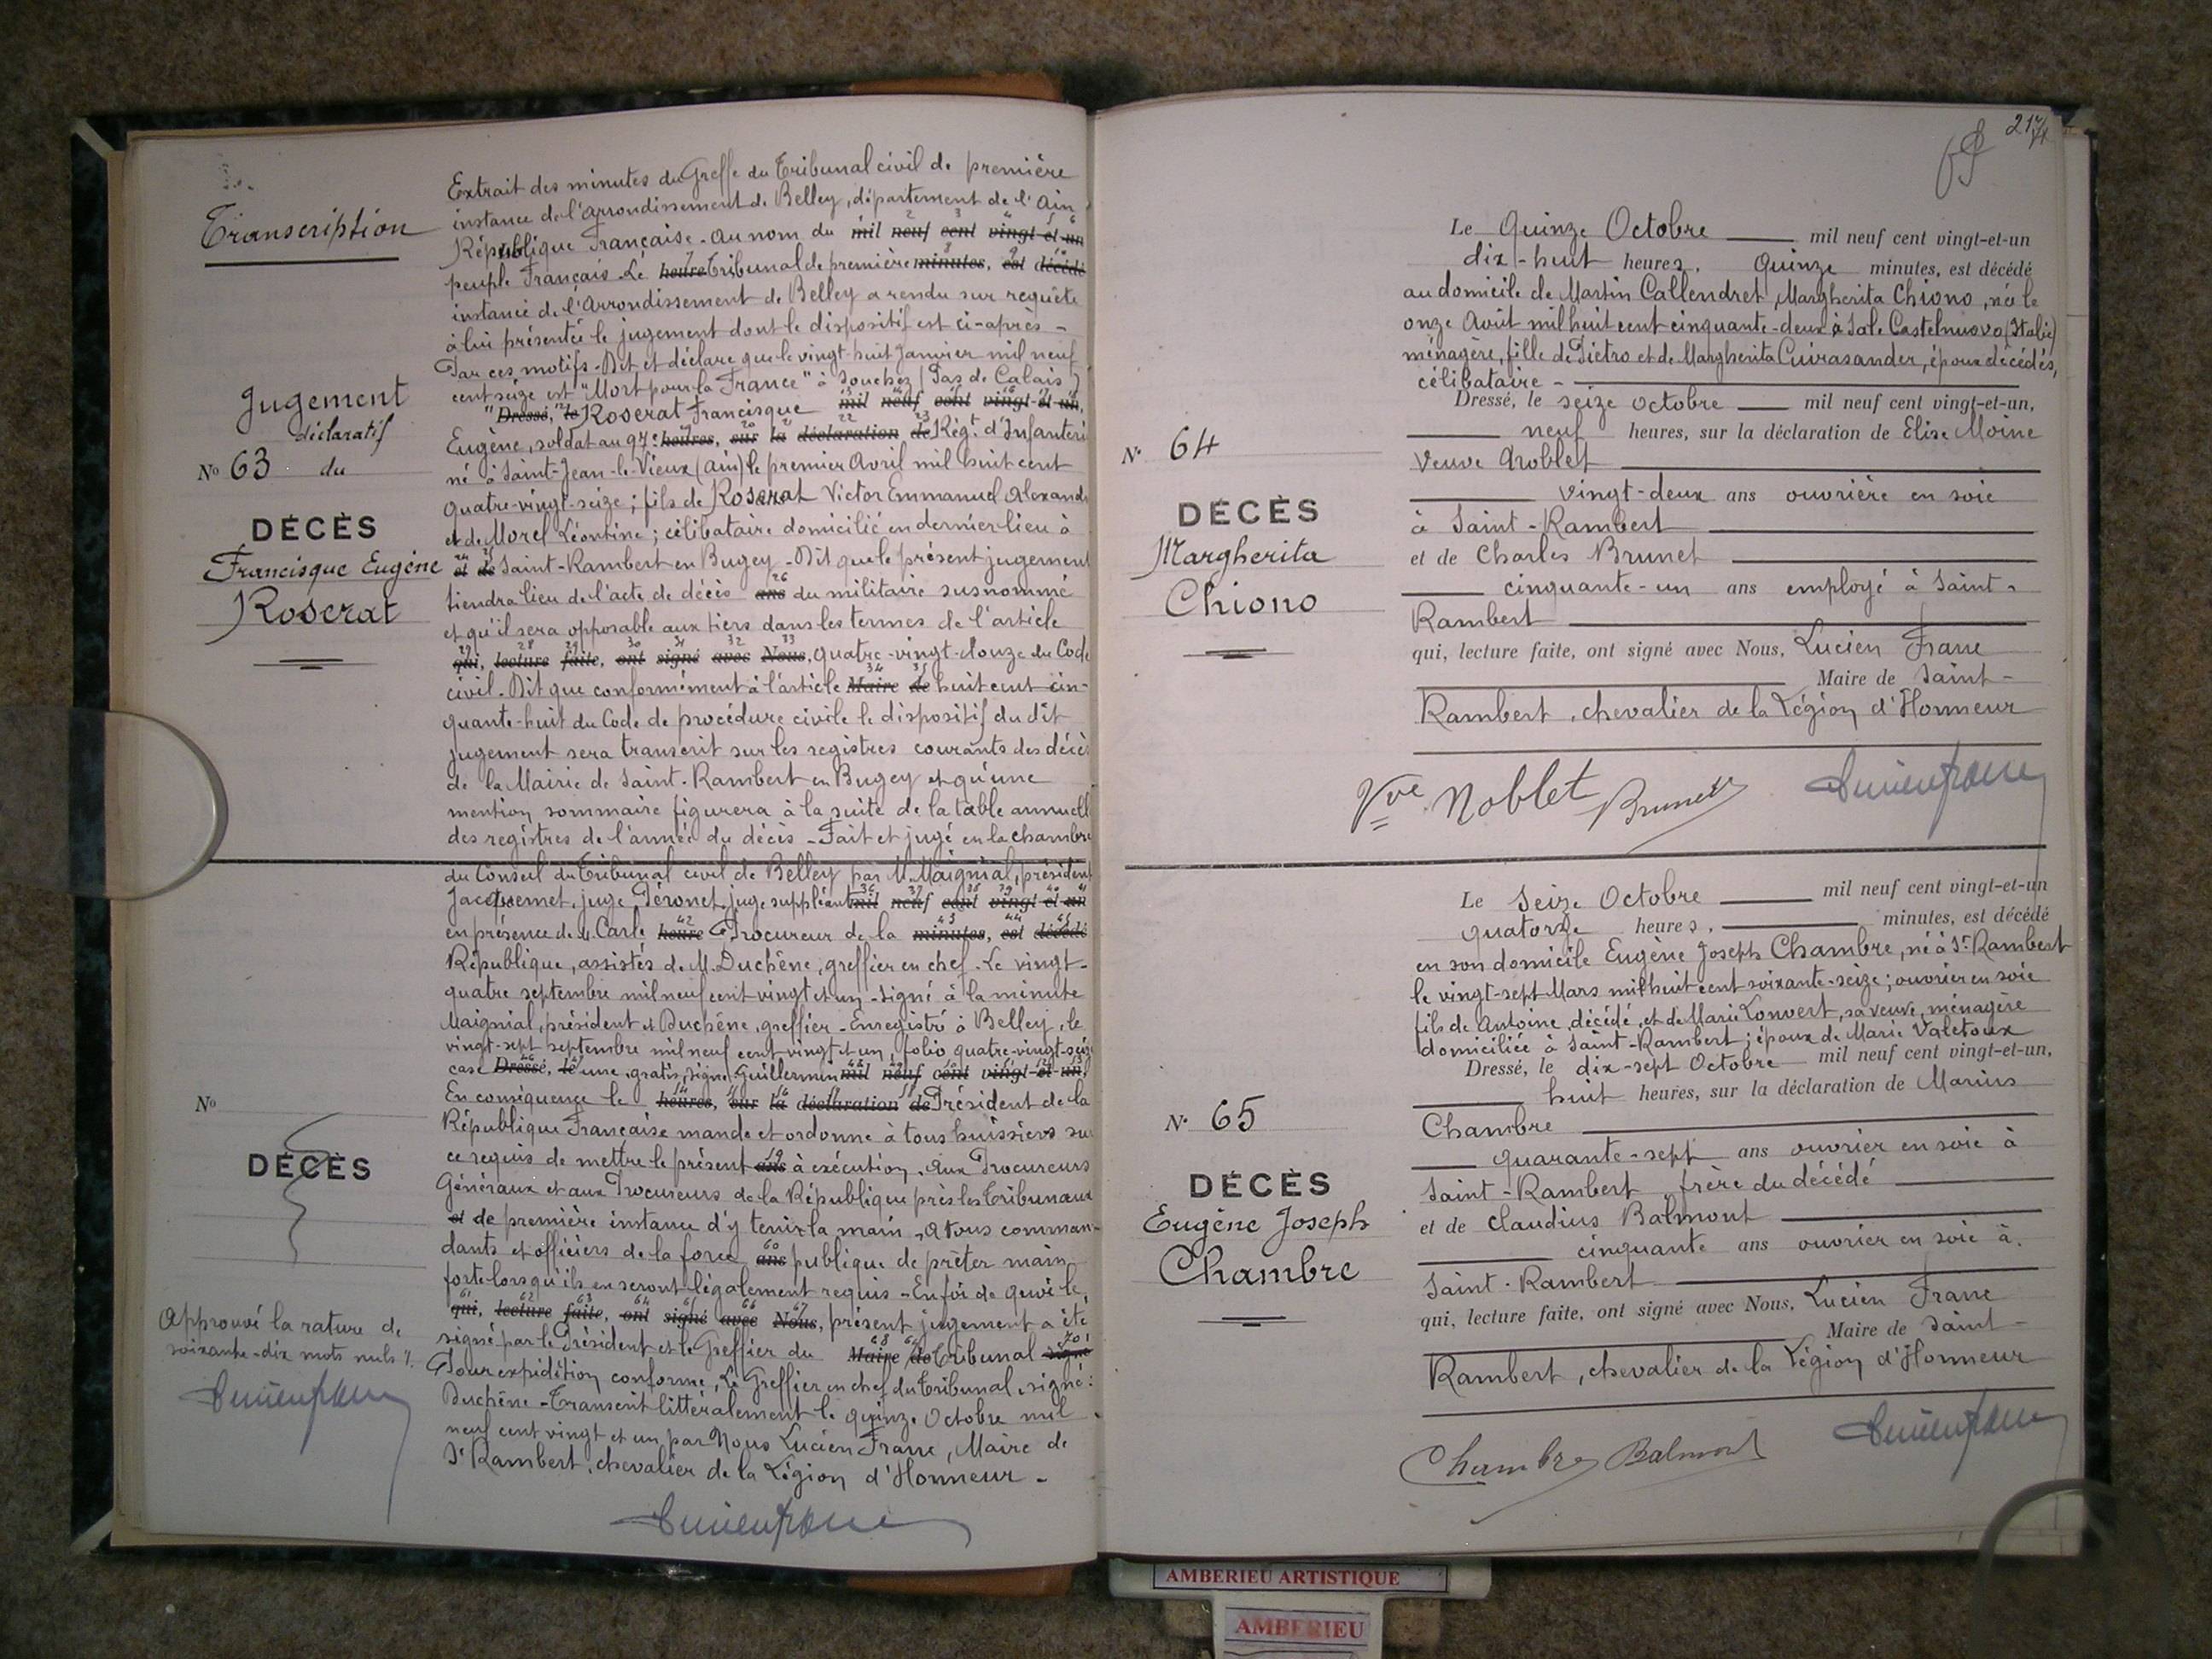 Transcription
Jugement
déclaratif
No 63 du
DÉCÈS
Francisque Eugène
Roserat
Extrait des minutes du Greffe du Tribunal civil de première
instance de l'arrondissement de Belley, département de l'Ain
République Française. Au nom du mil neuf cent vingt-et-un
peuple Français. Le heure Tribunal de première minutes, est décédé
instance de l'Arrondissement de Belley a rendu sur requête
à lui présentée le jugement dont le dispositif est ci-après -
Par ces motifs. Dit et déclare que le vingt-huit Janvier mil neuf
cent seize est "Mort pour la France" à Souchez (Pas de Calais)
"Dressé, le Roserat Francisque mil neuf cent vingt-et-un,
Eugène, soldat au 97e heures, sur la déclaration de Régt d'Infanterie
né à Saint-Jean-le-Vieux (Ain) le premier Avril mil huit cent
quatre-vingt-seize; fils de Roserat Victor Emmanuel Alexandre
et de Morel Léontine; célibataire domicilié en dernier lieu à
et de Saint-Rambert en Bugey - Dit que le présent jugement
tiendra lieu de l'acte de décès ans du militaire susnommé
et qu'il sera opposable aux tiers dans les termes de l'article
qui, lecture faite, ont signé avec Nous, quatre-vingt-douze du Code
civil. Dit que conformément à l'article Maire de huit cent cin-
quante-huit du Code de procédure civile le dispositif du dit
jugement sera transcrit sur les registres courants des décès
de la Mairie de Saint-Rambert en Bugey et qu'une
mention sommaire figurera à la suite de la table annuelle
des registres de l'année du décès - Fait et jugé en la chambre
du Conseil du Tribunal civil de Belley par M. Maignial, président
Jacquemet, juge, Péronet, juge suppléant mil neuf cent vingt-et-un
en présence de M. Carle heure Procureur de la minutes, est décédé
République, assistés de M. Duchêne, greffier en chef. Le vingt-
quatre septembre mil neuf cent vingt et un - Signé à la minute
Maignial, président et Duchêne, greffier - Enregistré à Belley, le
vingt-sept septembre mil neuf cent vingt et un, folio quatre-vingt-seize
case Dressé, le une, gratis, signé: Guillermin mil neuf cent vingt-et-un,
En conséquence le heures, sur la déclaration de Président de la
République Française mande et ordonne à tous huissiers sur
ce requis de mettre le présent ans à exécution. Aux Procureurs
Généraux et aux Procureurs de la République près les Tribunaux
et de première instance d'y tenir la main, A tous comman-
dants et officiers de la force ans publique de prêter main
forte lorsqu'ils en seront légalement requis - En foi de quoi le,
qui, lecture faite, ont signé avec Nous, présent jugement a été
signé par le Président et le Greffier du Maire de Tribunal signé
Pour expédition conforme, Le Greffier en chef du Tribunal, signé:
Duchêne - Transcrit littéralement le quinze Octobre mil
neuf cent vingt et un par Nous Lucien Franc, Maire de
St Rambert, chevalier de la Légion d'Honneur -
No
DÉCÈS
Approuvé la rature de
soixante-dix mots nuls
217
Le Quinze Octobre mil neuf cent vingt-et-un
dix-huit heures, Quinze minutes, est décédé
au domicile de Martin Callendret, Margherita Chiono, née le
onze Août mil huit cent cinquante-deux à Sale Castelnuovo (Italie)
ménagère, fille de Pietro et de Margherita Cuirasander, époux décédés,
célibataire -
Dressé, le seize octobre mil neuf cent vingt-et-un,
neuf heures, sur la déclaration de Elise Moine
Veuve Noblet
vingt-deux ans ouvrière en soie
à Saint-Rambert
et de Charles Brunet
cinquante-un ans employé à Saint-
Rambert
qui, lecture faite, ont signé avec Nous, Lucien Franc
Maire de Saint-
Rambert, chevalier de la Légion d'Honneur
No 64
DÉCÈS
Margherita
Chiono
Vve Noblet Brunet
Le Seize Octobre mil neuf cent vingt-et-un
quatorze heures, minutes, est décédé
en son domicile Eugène Joseph Chambre, né à St Rambert
le vingt-sept Mars mil huit cent soixante-seize; ouvrier en soie
fils de Antoine, décédé, et de Marie Convert, sa veuve, ménagère
domiciliée à Saint-Rambert; époux de Marie Valetoux
Dressé, le dix-sept Octobre mil neuf cent vingt-et-un,
huit heures, sur la déclaration de Marius
Chambre
quarante-sept ans ouvrier en soie à
Saint-Rambert, frère du décédé
et de Claudius Balmont
cinquante ans ouvrier en soie à
Saint-Rambert
qui, lecture faite, ont signé avec Nous, Lucien Franc
Maire de Saint-
Rambert, chevalier de la Légion d'Honneur
No 65
DÉCÈS
Eugène Joseph
Chambre
Chambre Balmont
AMBERIEU ARTISTIQUE
AMBERIEU